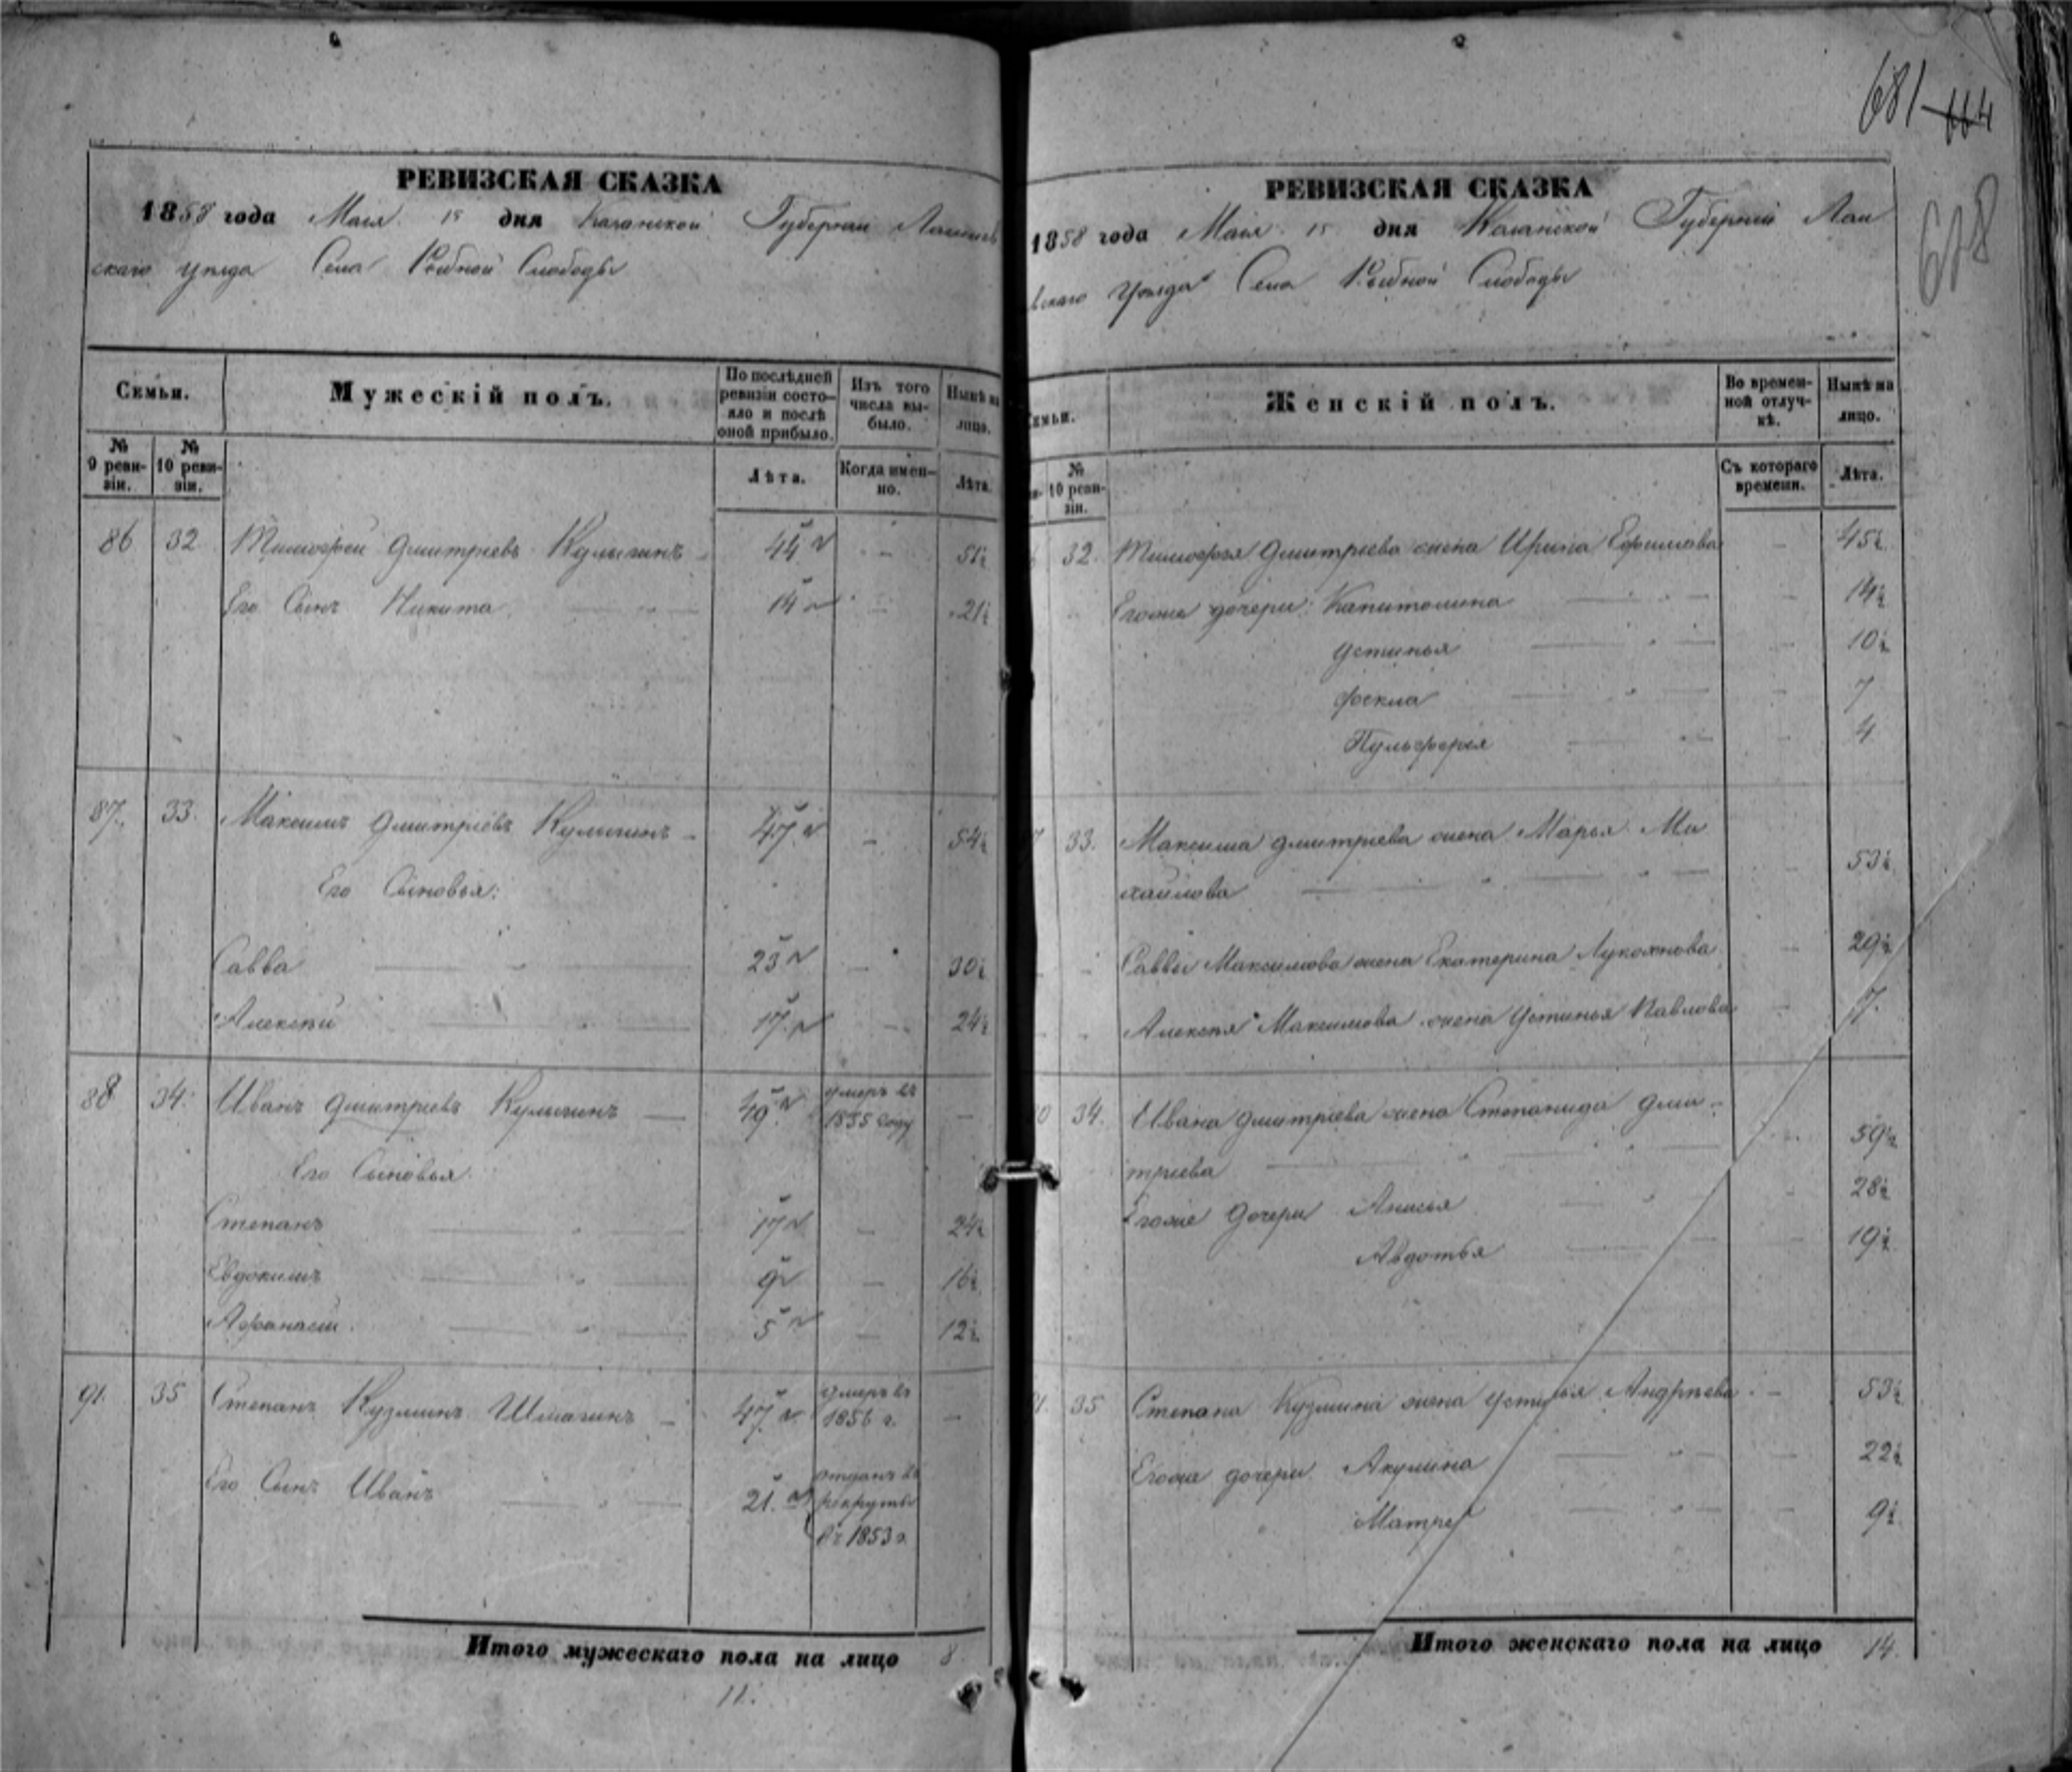 681 664
618
РЕВИЗСКАЯ СКАЗКА
1858 года Мая 15 дня Казанской Губернии Лаишев
скаго уѣзда Села Рыбной Слободы
Семьи.
Мужескій полъ.
По послѣдней ревизіи состояло и послѣ оной прибыло.
Изъ того числа выбыло.
Нынѣ на лицо.
№ 9 ревизіи.
№ 10 ревизіи.
Лѣта.
Когда именно.
Лѣта.
86 32 Тимофей Дмитріевъ Кулыгинъ 44 — 51½
Его Сынъ Никита 14 — 21½
87. 33. Максимъ Дмитріевъ Кулыгинъ 47 — 54½
Его Сыновья:
Савва 23 — 30½
Алексѣй 17 — 24½
88 34. Иванъ Дмитріевъ Кулыгинъ 49 умеръ въ 1855 году —
Его Сыновья.
Степанъ 17 — 24½
Евдокимъ 9 — 16½
Афанасій 5 — 12½
91. 35 Степанъ Кузминъ Шмагинъ 47 умеръ въ 1856 г. —
Его Сынъ Иванъ 21 отданъ въ рекруты въ 1853 г.
Итого мужескаго пола на лицо 8
11.
РЕВИЗСКАЯ СКАЗКА
1858 года Мая 15 дня Казанской Губерніи Лаи
вскаго Уѣзда Села Рыбной Слободы
Женскій полъ.
Во временной отлучкѣ.
Нынѣ на лицо.
№ 10 ревизіи.
Съ котораго времени.
Лѣта.
32. Тимофея Дмитріева жена Ирина Ефимова — 45½
Егоже дочери: Капитолина — 14½
Устинья — 10½
Фекла — 7
Пульферия — 4
33. Максима Дмитріева жена Марья Ми
хайлова — 53½
Саввы Максимова жена Екатерина Лукоянова — 29½
Алексѣя Максимова жена Устинья Павлова —
34. Ивана Дмитріева жена Степанида Дми-
тріева 59½
Егоже Дочери Анисья 28½
Авдотья 19½
35 Степана Кузмина жена Устинья Андрѣева — 53½
Егоже дочери Акулина 22½
Матре 9½
Итого женскаго пола на лицо 14.